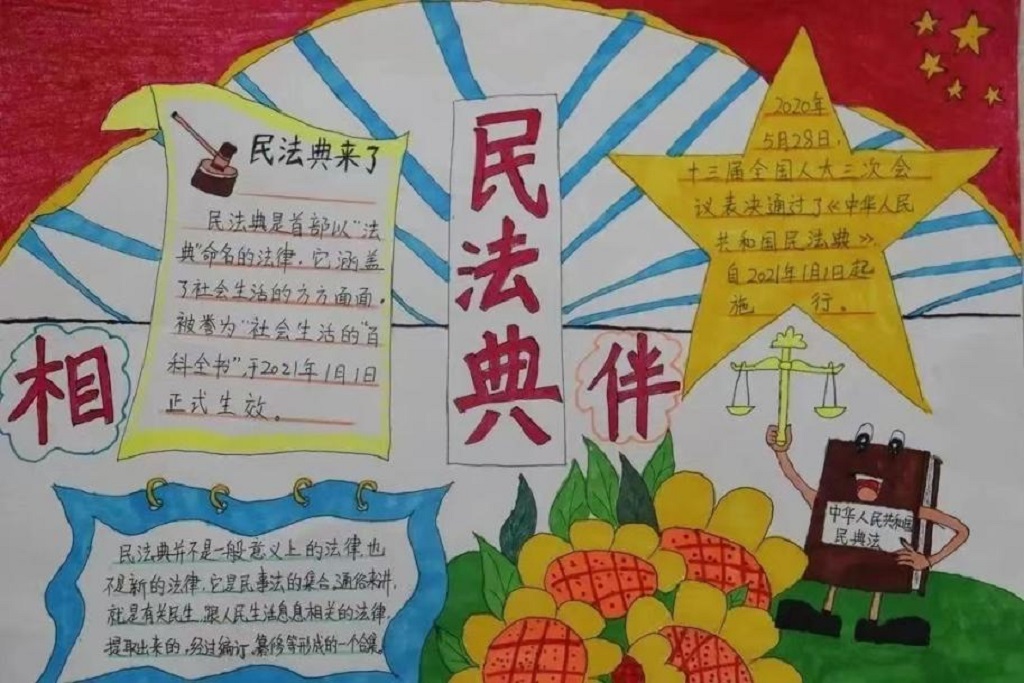 民法典
相
伴
民法典来了
民法典是首部以"法
典"命名的法律,它涵盖
了社会生活的方方面面,
被誉为"社会生活的"百
科全书",于2021年1月1日
正式生效。
2020年
5月28日,
十三届全国人大三次会
议表决通过了《中华人民
共和国民法典》,
自2021年1月1日起
施 行。
民法典并不是一般意义上的法律,也
不是新的法律,它是民事法的集合,通俗来讲,
就是有关民生,跟人民生活息息相关的法律,
提取出来的,经过编订、纂修等形成的一个合集。
中华人民共和国
民典法